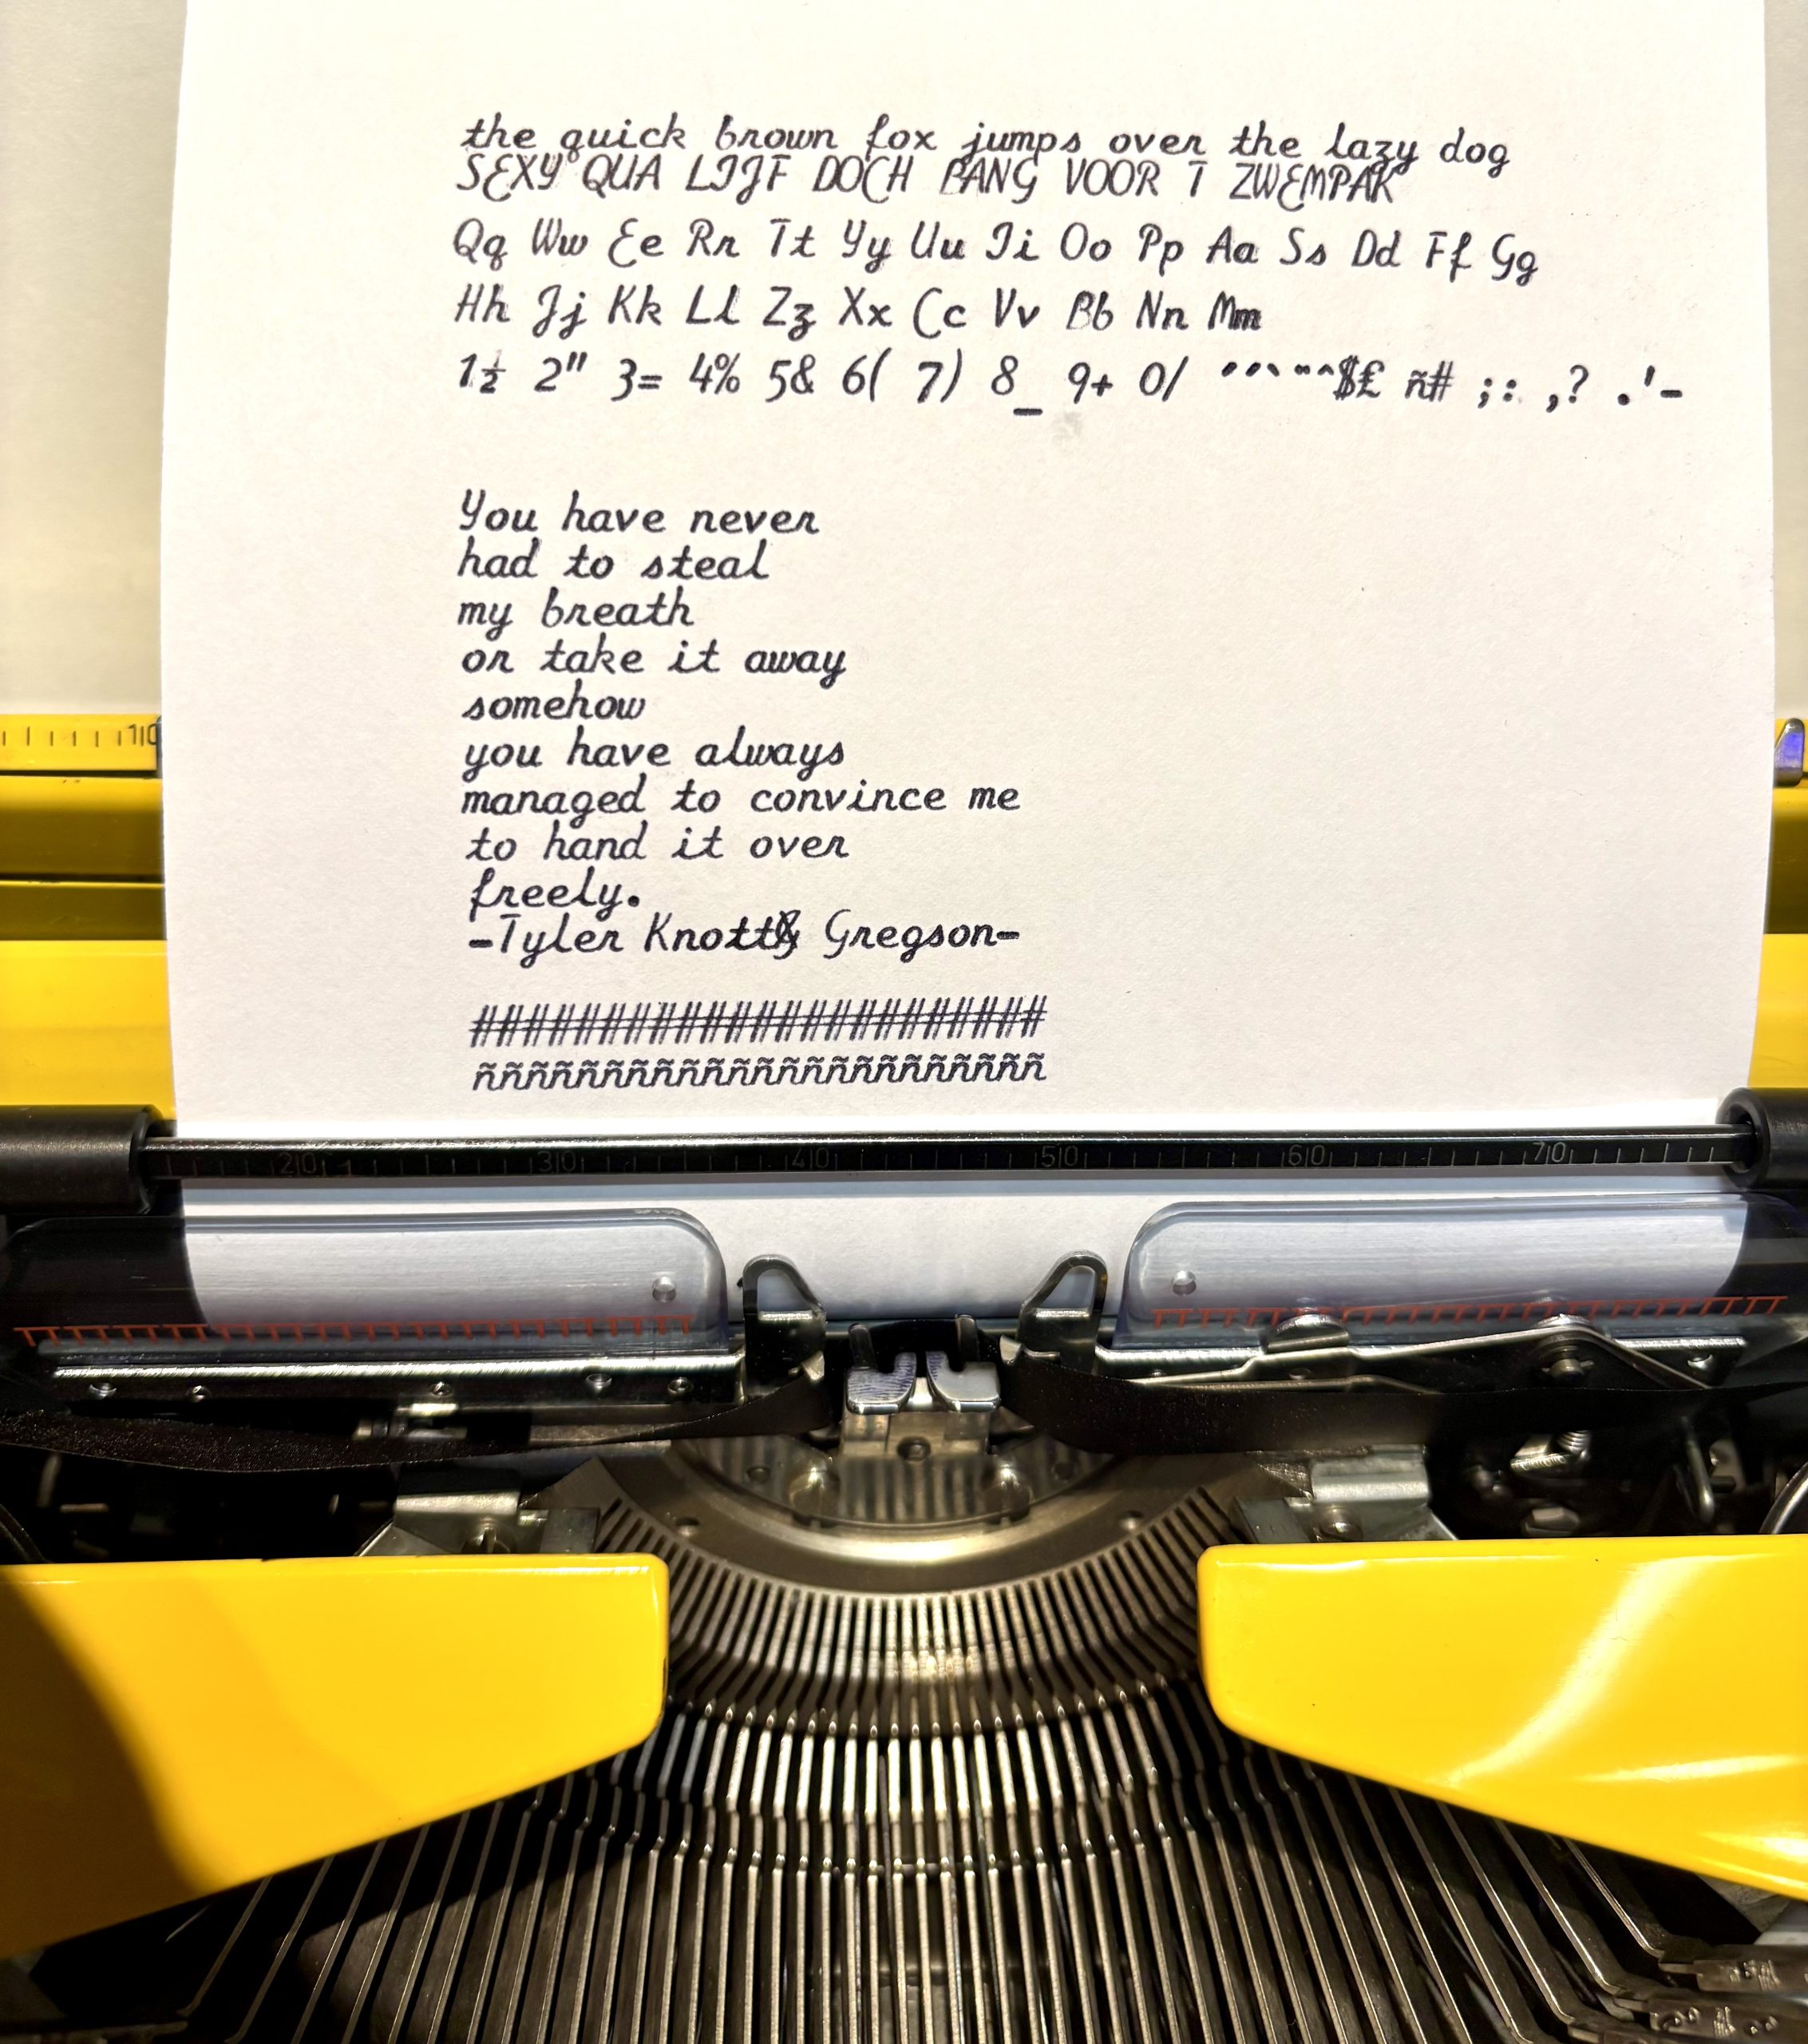 the quick brown fox jumps over the lazy dog
SEXY QUA LIJF DOCH BANG VOOR T ZWEMPAK
Qq Ww Ee Rr Tt Yy Uu Ii Oo Pp Aa Ss Dd Ff Gg
Hh Jj Kk Ll Zz Xx Cc Vv Bb Nn Mm
1½ 2" 3= 4% 5& 6( 7) 8_ 9+ 0/ ´´` ¨¨^$£ ñ# ;: ,? .'-
You have never
had to steal
my breath
or take it away
somehow
you have always
managed to convince me
to hand it over
freely.
-Tyler Knott& Gregson-
#######################
ñññññññññññññññññññññññ
10
20 30 40 50 60 70